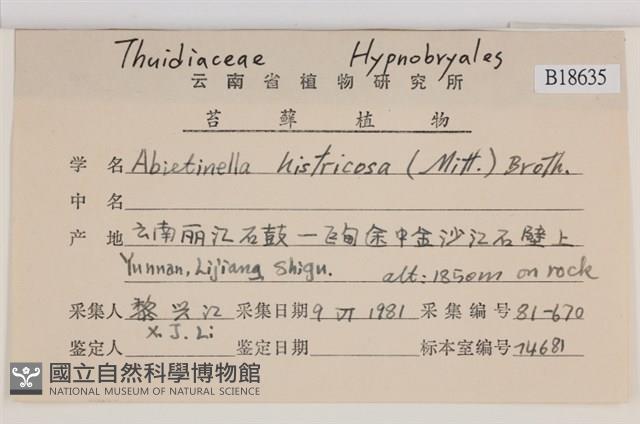 Thuidiaceae Hypnobryales
云南省植物研究所
B18635
苔藓植物
学名 Abietinella histricosa (Mitt.) Broth.
中名
产地 云南丽江石鼓一区甸余中金沙江石壁上
Yunnan, Lijiang, Shigu. alt: 1850m on rock
采集人 黎兴江 采集日期 9 VI 1981 采集编号 81-670
X. J. Li
鉴定人 鉴定日期 标本室编号 74681
國立自然科學博物館
NATIONAL MUSEUM OF NATURAL SCIENCE